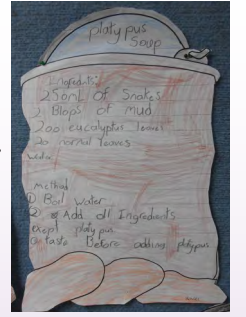 platypus
Soup
Ingredients:
250ml of Snakes
2 Blops of mud
200 eucalyptus leaves
20 normal leaves
water
method
① Boil water
② Add all Ingredients
except platypus
taste Before adding platypus